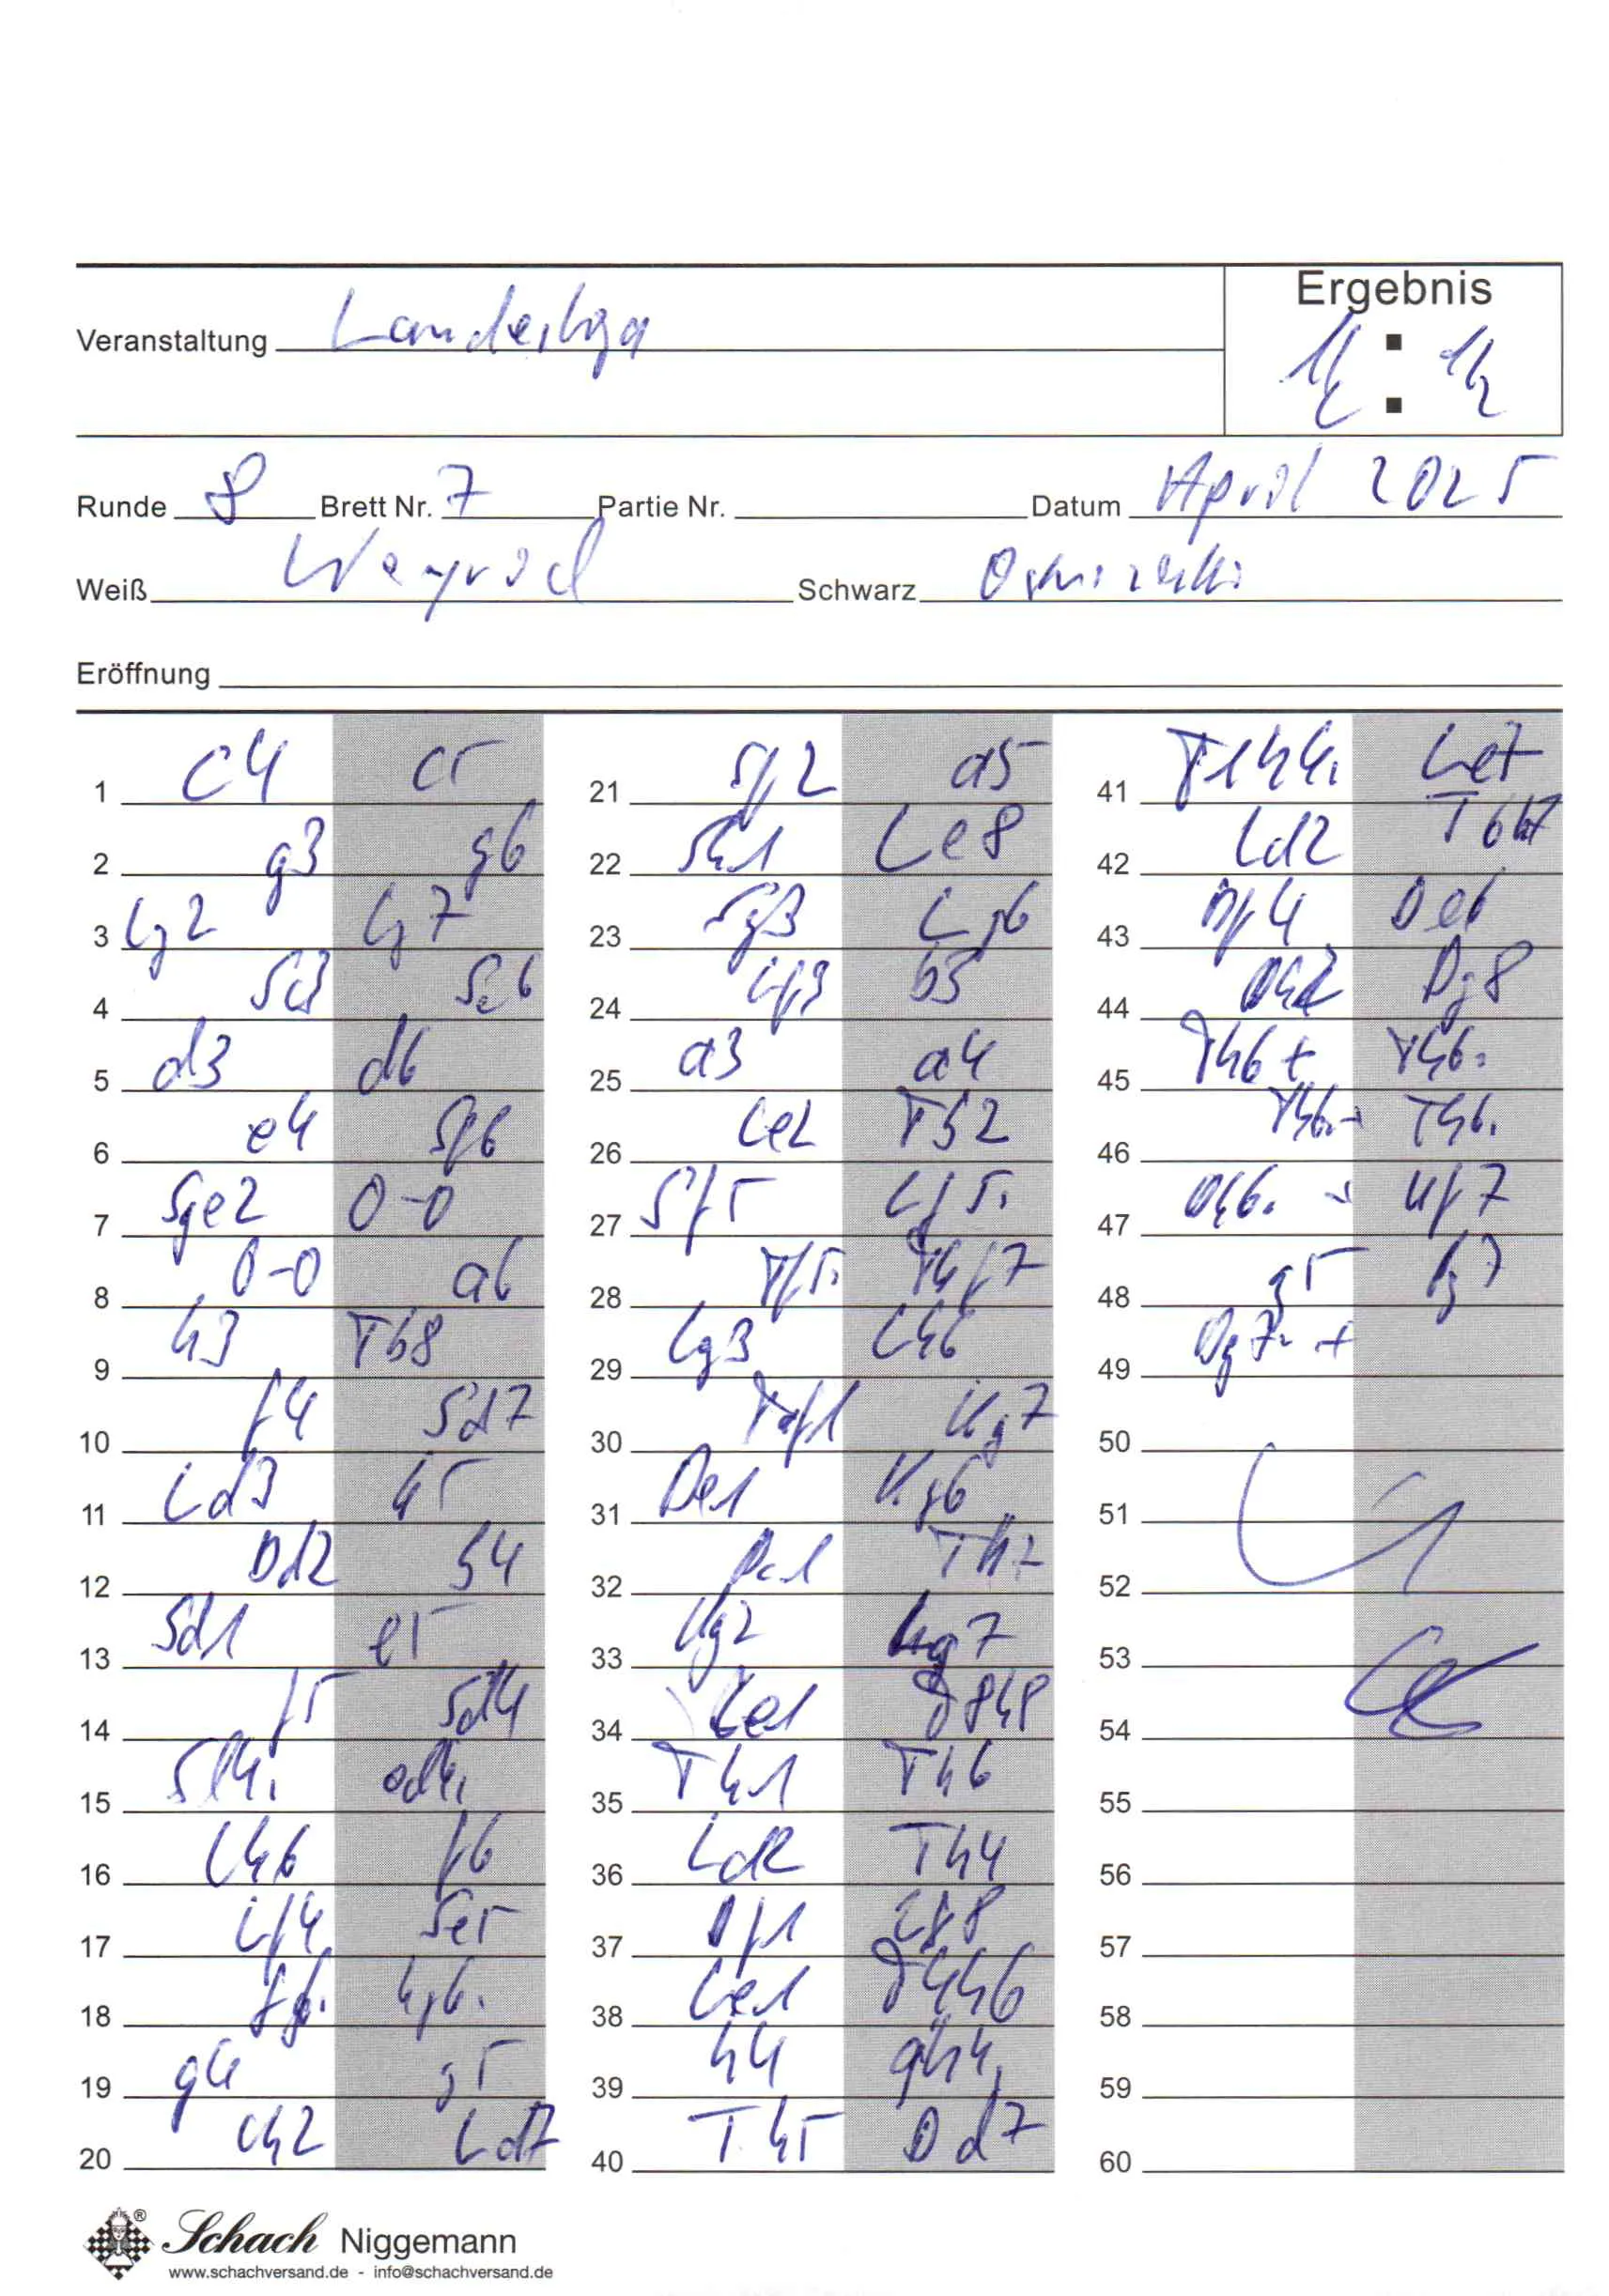 Ergebnis
Veranstaltung Landesliga
1/2 : 1/2
Runde 8 Brett Nr. 7 Partie Nr. Datum April 2025
Weiß Schwarz
Eröffnung
1 c4 c5
2 g3 g6
3 Lg2 Lg7
4 Sc3 Sc6
5 d3 d6
6 e4 Sf6
7 Sge2 0-0
8 0-0 a6
9 h3 Tb8
10 f4 Sd7
11 Ld3 h5
12 Dd2 b4
13 Sd1 e5
14 f5 Sd4
15 Sd4: ed4:
16 Lh6 f6
17 Lf4 Se5
18 fg6: hg6:
19 g4 g5
20 Lh2 Ld7
21 Sf2 a5
22 Sh1 Le8
23 Sg3 Lg6
24 Lf3 b3
25 a3 a4
26 Le2 Tb7
27 Sf5 Lf5:
28 Tf5:
29 Lg3 Lh6
30 Taf1 Kg7
31 De1 Kg6
32 Dc1 Th7
33 Kg2 Kg7
34 Le1 T8h8
35 Th1 Th6
36 Ld2 Th4
37 Df1 Lf8
38 Le1 T4h6
39 h4 gh4:
40 Th5 Dd7
41 T1h4: Le7
42 Ld2 T6h7
43 Df4 De6
44 Dh2 Dg8
45 Th6+ Th6:
46 Th6:+ Th6:
47 Dh6:+ Kf7
48 g5 fg7
49 Dg7:+
50
51
52
53
54
55
56
57
58
59
60
Schach Niggemann
www.schachversand.de - info@schachversand.de